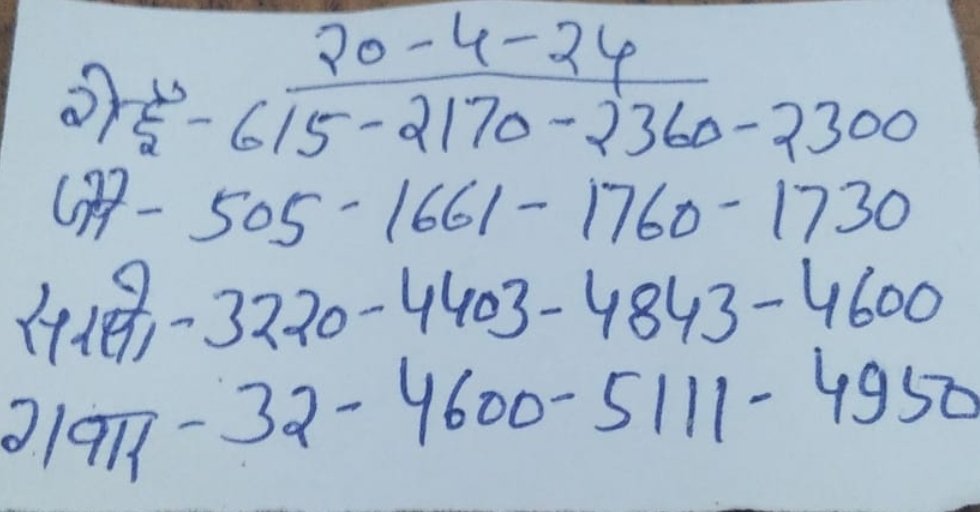 20-4-24
गेहूँ - 615 - 2170 - 2360 - 2300
जौ - 505 - 1661 - 1760 - 1730
सरसो - 3220 - 4403 - 4843 - 4600
गवार - 32 - 4600 - 5111 - 4950